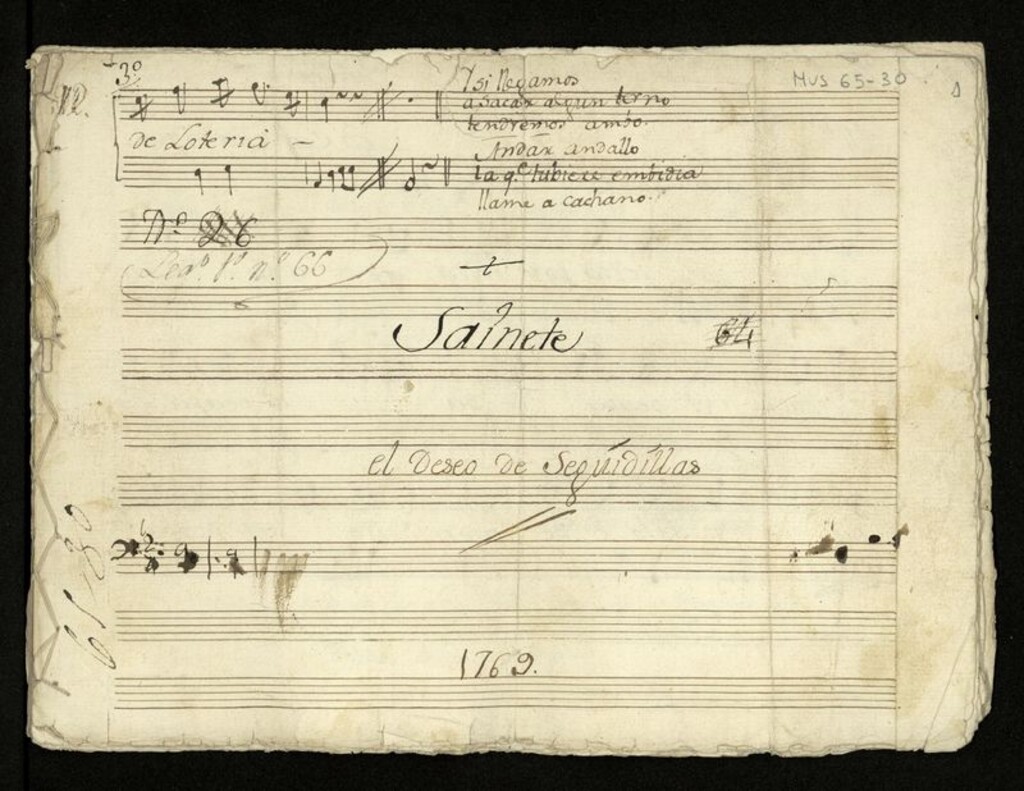 3º
MUS 65-30
Y si llegamos
a sacar algun terno
tendremos ambo.
de Loteria
Andar andallo
la qe. tubiere embidia
llame a cachano.
Nº 26
Legº 1º nº 66
Sainete
64
el Deseo de Seguidillas
1769.